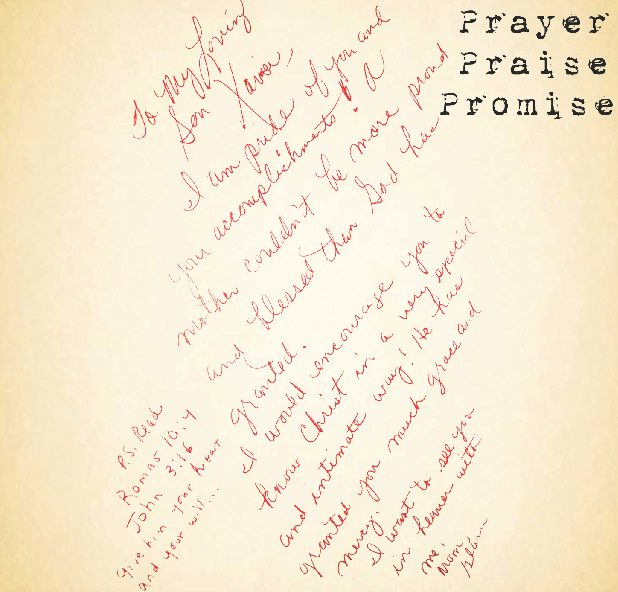 Prayer
Praise
Promise
To My Loving
Son Xavier,
I am pride of you and
your accomplishments. A
mother couldn't be more proud
and blessed than God has
granted.
I would encourage you to
know Christ in a very special
and intimate way! He has
granted you much grace and
mercy.
I want to see you
in heaven with
me.
Mom
P.S. Read
Romas 10:4
John 3:16
give him your hear
and your will...